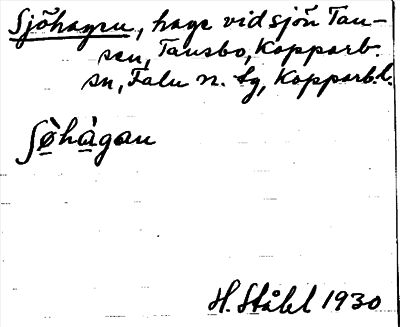 Sjöhagen, hage vid sjön Tan-
sen, Tansbo, Kopparb.
sn, Falu n. tg, Kopparb.l.
ʃø̀hàgan
H. Ståhl 1930